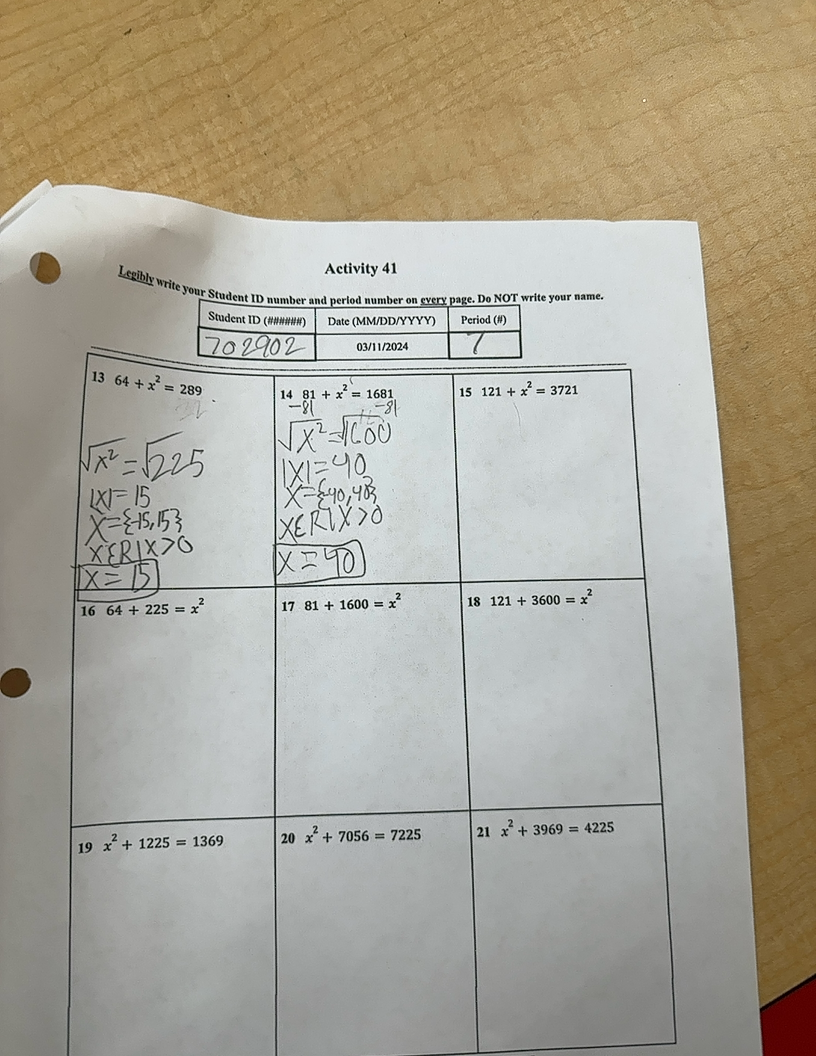 Activity 41
Legibly write your Student ID number and period number on every page. Do NOT write your name.
Student ID (######) Date (MM/DD/YYYY) Period (#)
702902 03/11/2024 7
13 64 + x² = 289
√x² = √225
|x| = 15
x = {-15, 15}
x∈R | x > 0
x = 15
14 81 + x² = 1681
-81 -81
√x² = √1600
|x| = 40
x = {-40, 40}
x∈R | x > 0
x = 40
15 121 + x² = 3721
16 64 + 225 = x²
17 81 + 1600 = x²
18 121 + 3600 = x²
19 x² + 1225 = 1369
20 x² + 7056 = 7225
21 x² + 3969 = 4225